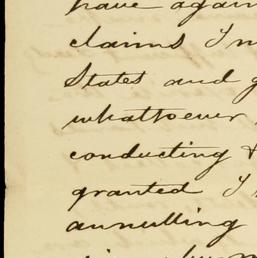 have again
claims I
States and
whattoever
conducting &
granted I
annulling